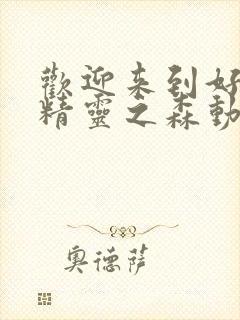 歡迎来到好
精靈之森動
奧德薩